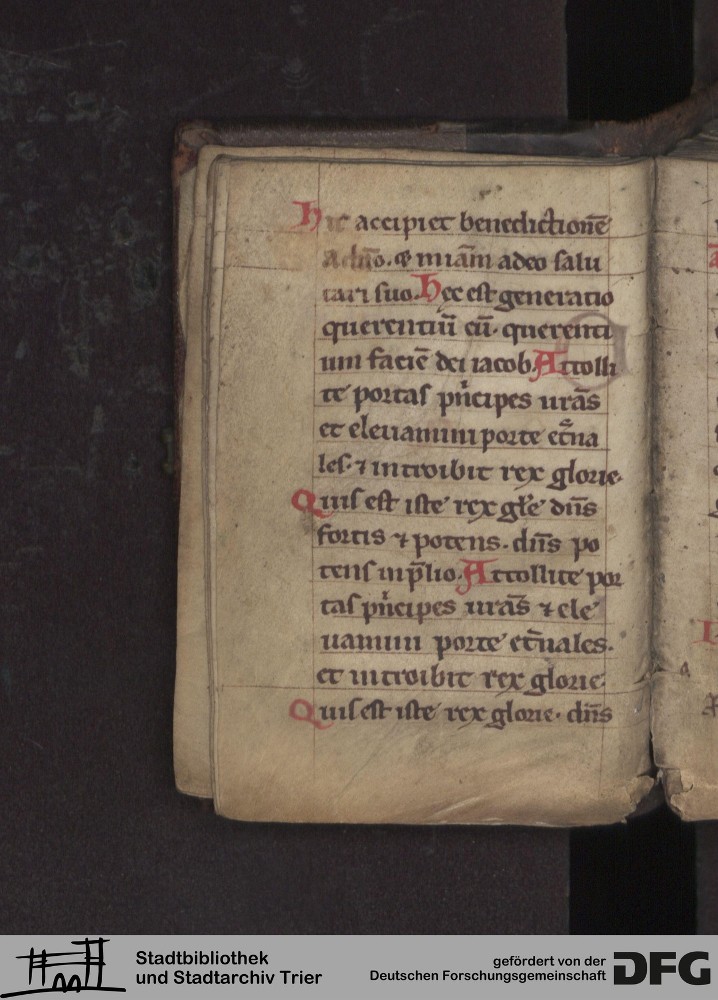 Hic accipiet benedictionē
a dn̄o. & miam̄ a deo salu
tari suo. Hec est generatio
querentiū eū. querenti
um faciē dei iacob. Attolli
te portas pn̍cipes urās
et eleuamini porte et̄na
les. ⁊ introibit rex glorie.
Quis est iste rex gl̄e dn̄s
fortis ⁊ potens. dn̄s po
tens in p̄lio. Attollite por
tas pn̍cipes urās ⁊ ele
uamini porte et̄nales.
et introibit rex glorie.
Quis est iste rex glorie. dn̄s
Stadtbibliothek
und Stadtarchiv Trier
gefördert von der
Deutschen Forschungsgemeinschaft
DFG